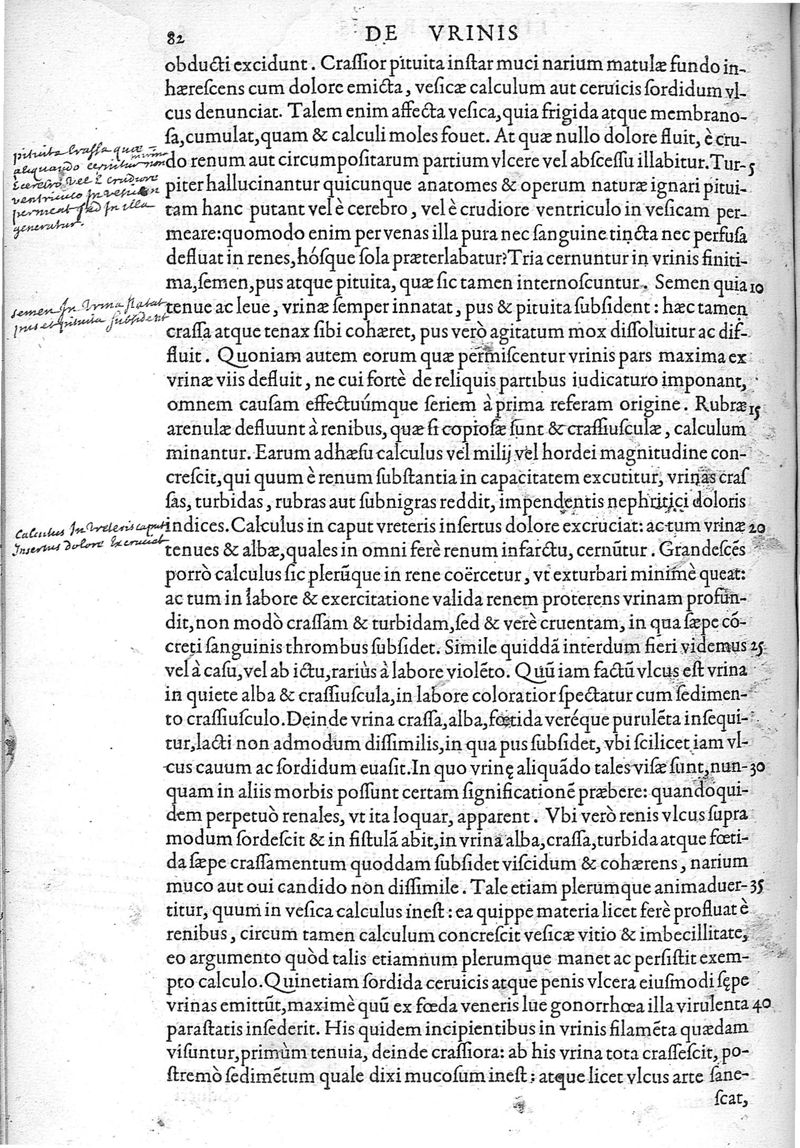 82 DE VRINIS
obducti excidunt. Craſſior pituita inſtar muci narium matulæ fundo in-
hæreſcens cum dolore emicta, veſicæ calculum aut ceruicis ſordidum vl-
cus denunciat. Talem enim affecta veſica, quia frigida atque membrano-
ſa, cumulat, quam & calculi moles fouet. At quæ nullo dolore fluit, è cru-
do renum aut circumpoſitarum partium vlcere vel abſceſſu illabitur. Tur- 5
piter hallucinantur quicunque anatomes & operum naturæ ignari pitui-
tam hanc putant vel è cerebro, vel è crudiore ventriculo in veſicam per-
meare: quomodo enim per venas illa pura nec ſanguine tincta nec perfuſa
defluat in renes, hóſque ſola præterlabatur? Tria cernuntur in vrinis finiti-
ma, ſemen, pus atque pituita, quæ ſic tamen internoſcuntur. Semen quia 10
tenue ac leue, vrinæ ſemper innatat, pus & pituita ſubſident: hæc tamen
craſſa atque tenax ſibi cohæret, pus verò agitatum mox diſſoluitur ac dif-
fluit. Quoniam autem eorum quæ permiſcentur vrinis pars maxima ex
vrinæ viis defluit, ne cui fortè de reliquis partibus iudicaturo imponant,
omnem cauſam effectuúmque ſeriem à prima referam origine. Rubræ 15
arenulæ defluunt à renibus, quæ ſi copioſæ ſunt & craſſiuſculæ, calculum
minantur. Earum adhæſu calculus vel milij vel hordei magnitudine con-
creſcit, qui quum è renum ſubſtantia in capacitatem excutitur, vrinas craſ
ſas, turbidas, rubras aut ſubnigras reddit, impendentis nephritici doloris
indices. Calculus in caput vreteris inſertus dolore excruciat: ac tum vrinæ 20
tenues & albæ, quales in omni ferè renum infarctu, cernũtur. Grandeſcẽs
porrò calculus ſic plerũque in rene coërcetur, vt exturbari minimè queat:
ac tum in labore & exercitatione valida renem proterens vrinam profun-
dit, non modò craſſam & turbidam, ſed & verè cruentam, in qua ſæpe cõ-
creti ſanguinis thrombus ſubſidet. Simile quiddã interdum fieri videmus 25
vel à caſu, vel ab ictu, rariùs à labore violẽto. Quũ iam factũ vlcus eſt vrina
in quiete alba & craſſiuſcula, in labore coloratior ſpectatur cum ſedimen-
to craſſiuſculo. Deinde vrina craſſa, alba, fœtida veréque purulẽta inſequi-
tur, lacti non admodum diſſimilis, in qua pus ſubſidet, vbi ſcilicet iam vl-
cus cauum ac ſordidum euaſit. In quo vrinę aliquãdo tales viſæ ſunt, nun- 30
quam in aliis morbis poſſunt certam ſignificationẽ præbere: quandoqui-
dem perpetuò renales, vt ita loquar, apparent. Vbi verò renis vlcus ſupra
modum ſordeſcit & in fiſtulã abit, in vrina alba, craſſa, turbida atque fœti-
da ſæpe craſſamentum quoddam ſubſidet viſcidum & cohærens, narium
muco aut oui candido non diſſimile. Tale etiam plerumque animaduer- 35
titur, quum in veſica calculus ineſt: ea quippe materia licet ferè profluat è
renibus, circum tamen calculum concreſcit veſicæ vitio & imbecillitate,
eo argumento quòd talis etiamnum plerumque manet ac perſiſtit exem-
pto calculo. Quinetiam ſordida ceruicis atque penis vlcera eiuſmodi ſępe
vrinas emittũt, maximè quũ ex fœda veneris lue gonorrhœa illa virulenta 40
paraſtatis inſederit. His quidem incipientibus in vrinis filamẽta quædam
viſuntur, primùm tenuia, deinde craſſiora: ab his vrina tota craſſeſcit, po-
ſtremò ſedimẽtum quale dixi mucoſum ineſt: atque licet vlcus arte ſane-
ſcat,
pituita craſſa quæ
aliquando cernitur
non
è cerebro vel è crudiore
ventriculo in veſicam
permeat ſed in illa
generatur.
semen in vrina natat
pus et pituita ſubſident
Calculus in vreteris caput
inſertus dolore excruciat